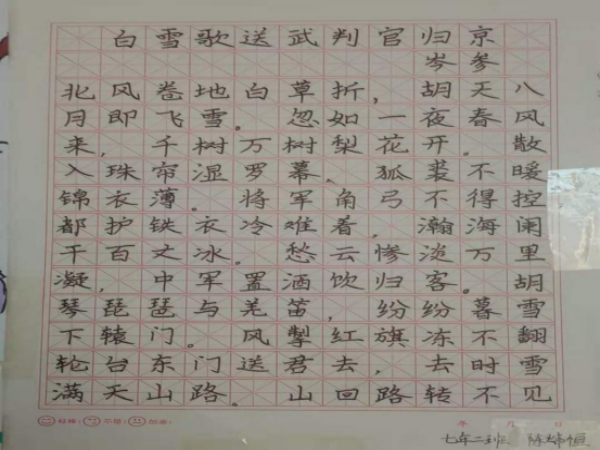 白雪歌送武判官归京
岑参
北风卷地白草折，胡天八
月即飞雪。忽如一夜春风
来，千树万树梨花开。散
入珠帘湿罗幕。狐裘不暖
锦衣薄。将军角弓不得控
都护铁衣冷难着，瀚海阑
干百丈冰。愁云惨淡万里
凝，中军置酒饮归客。胡
琴琵琶与羌笛，纷纷暮雪
下辕门。风掣红旗冻不翻
轮台东门送君去，去时雪
满天山路。山回路转不见
好棒： 不错： 加油： 年 月 日
七年二班